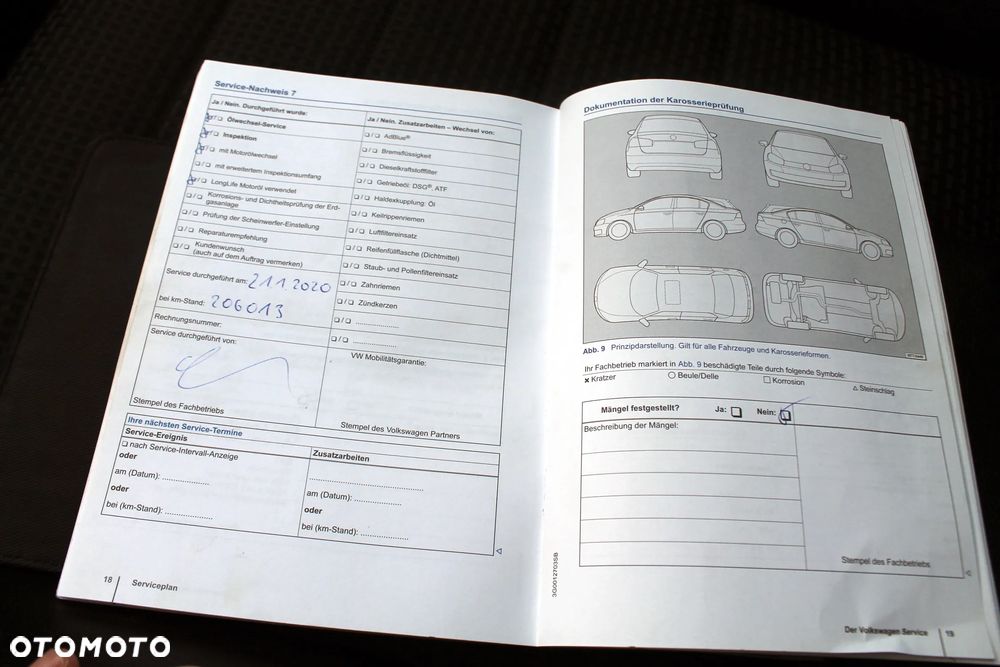 Service-Nachweis 7
Ja / Nein. Durchgeführt wurde:
Ölwechsel-Service
Inspektion
mit Motorölwechsel
mit erweitertem Inspektionsumfang
LongLife Motoröl verwendet
Korrosions- und Dichtheitsprüfung der Erd-
gasanlage
Prüfung der Scheinwerfer-Einstellung
Reparaturempfehlung
Kundenwunsch
(auch auf dem Auftrag vermerken)
Service durchgeführt am: 21.1.2020
bei km-Stand: 206013
Rechnungsnummer:
Service durchgeführt von:
Stempel des Fachbetriebs
Ja / Nein. Zusatzarbeiten – Wechsel von:
AdBlue®
Bremsflüssigkeit
Dieselkraftstofffilter
Getriebeöl: DSG®, ATF
Haldexkupplung: Öl
Keilrippenriemen
Luftfiltereinsatz
Reifenfüllflasche (Dichtmittel)
Staub- und Pollenfiltereinsatz
Zahnriemen
Zündkerzen
VW Mobilitätsgarantie:
Stempel des Volkswagen Partners
Ihre nächsten Service-Termine
Service-Ereignis
nach Service-Intervall-Anzeige
oder
am (Datum):
oder
bei (km-Stand):
Zusatzarbeiten
am (Datum):
oder
bei (km-Stand):
18 Serviceplan
Dokumentation der Karosserieprüfung
Abb. 9 Prinzipdarstellung. Gilt für alle Fahrzeuge und Karosserieformen.
Ihr Fachbetrieb markiert in Abb. 9 beschädigte Teile durch folgende Symbole:
x Kratzer Beule/Delle Korrosion Steinschlag
Mängel festgestellt? Ja: Nein:
Beschreibung der Mängel:
Stempel des Fachbetriebs
3G0012703SB
Der Volkswagen Service 19
OTOMOTO